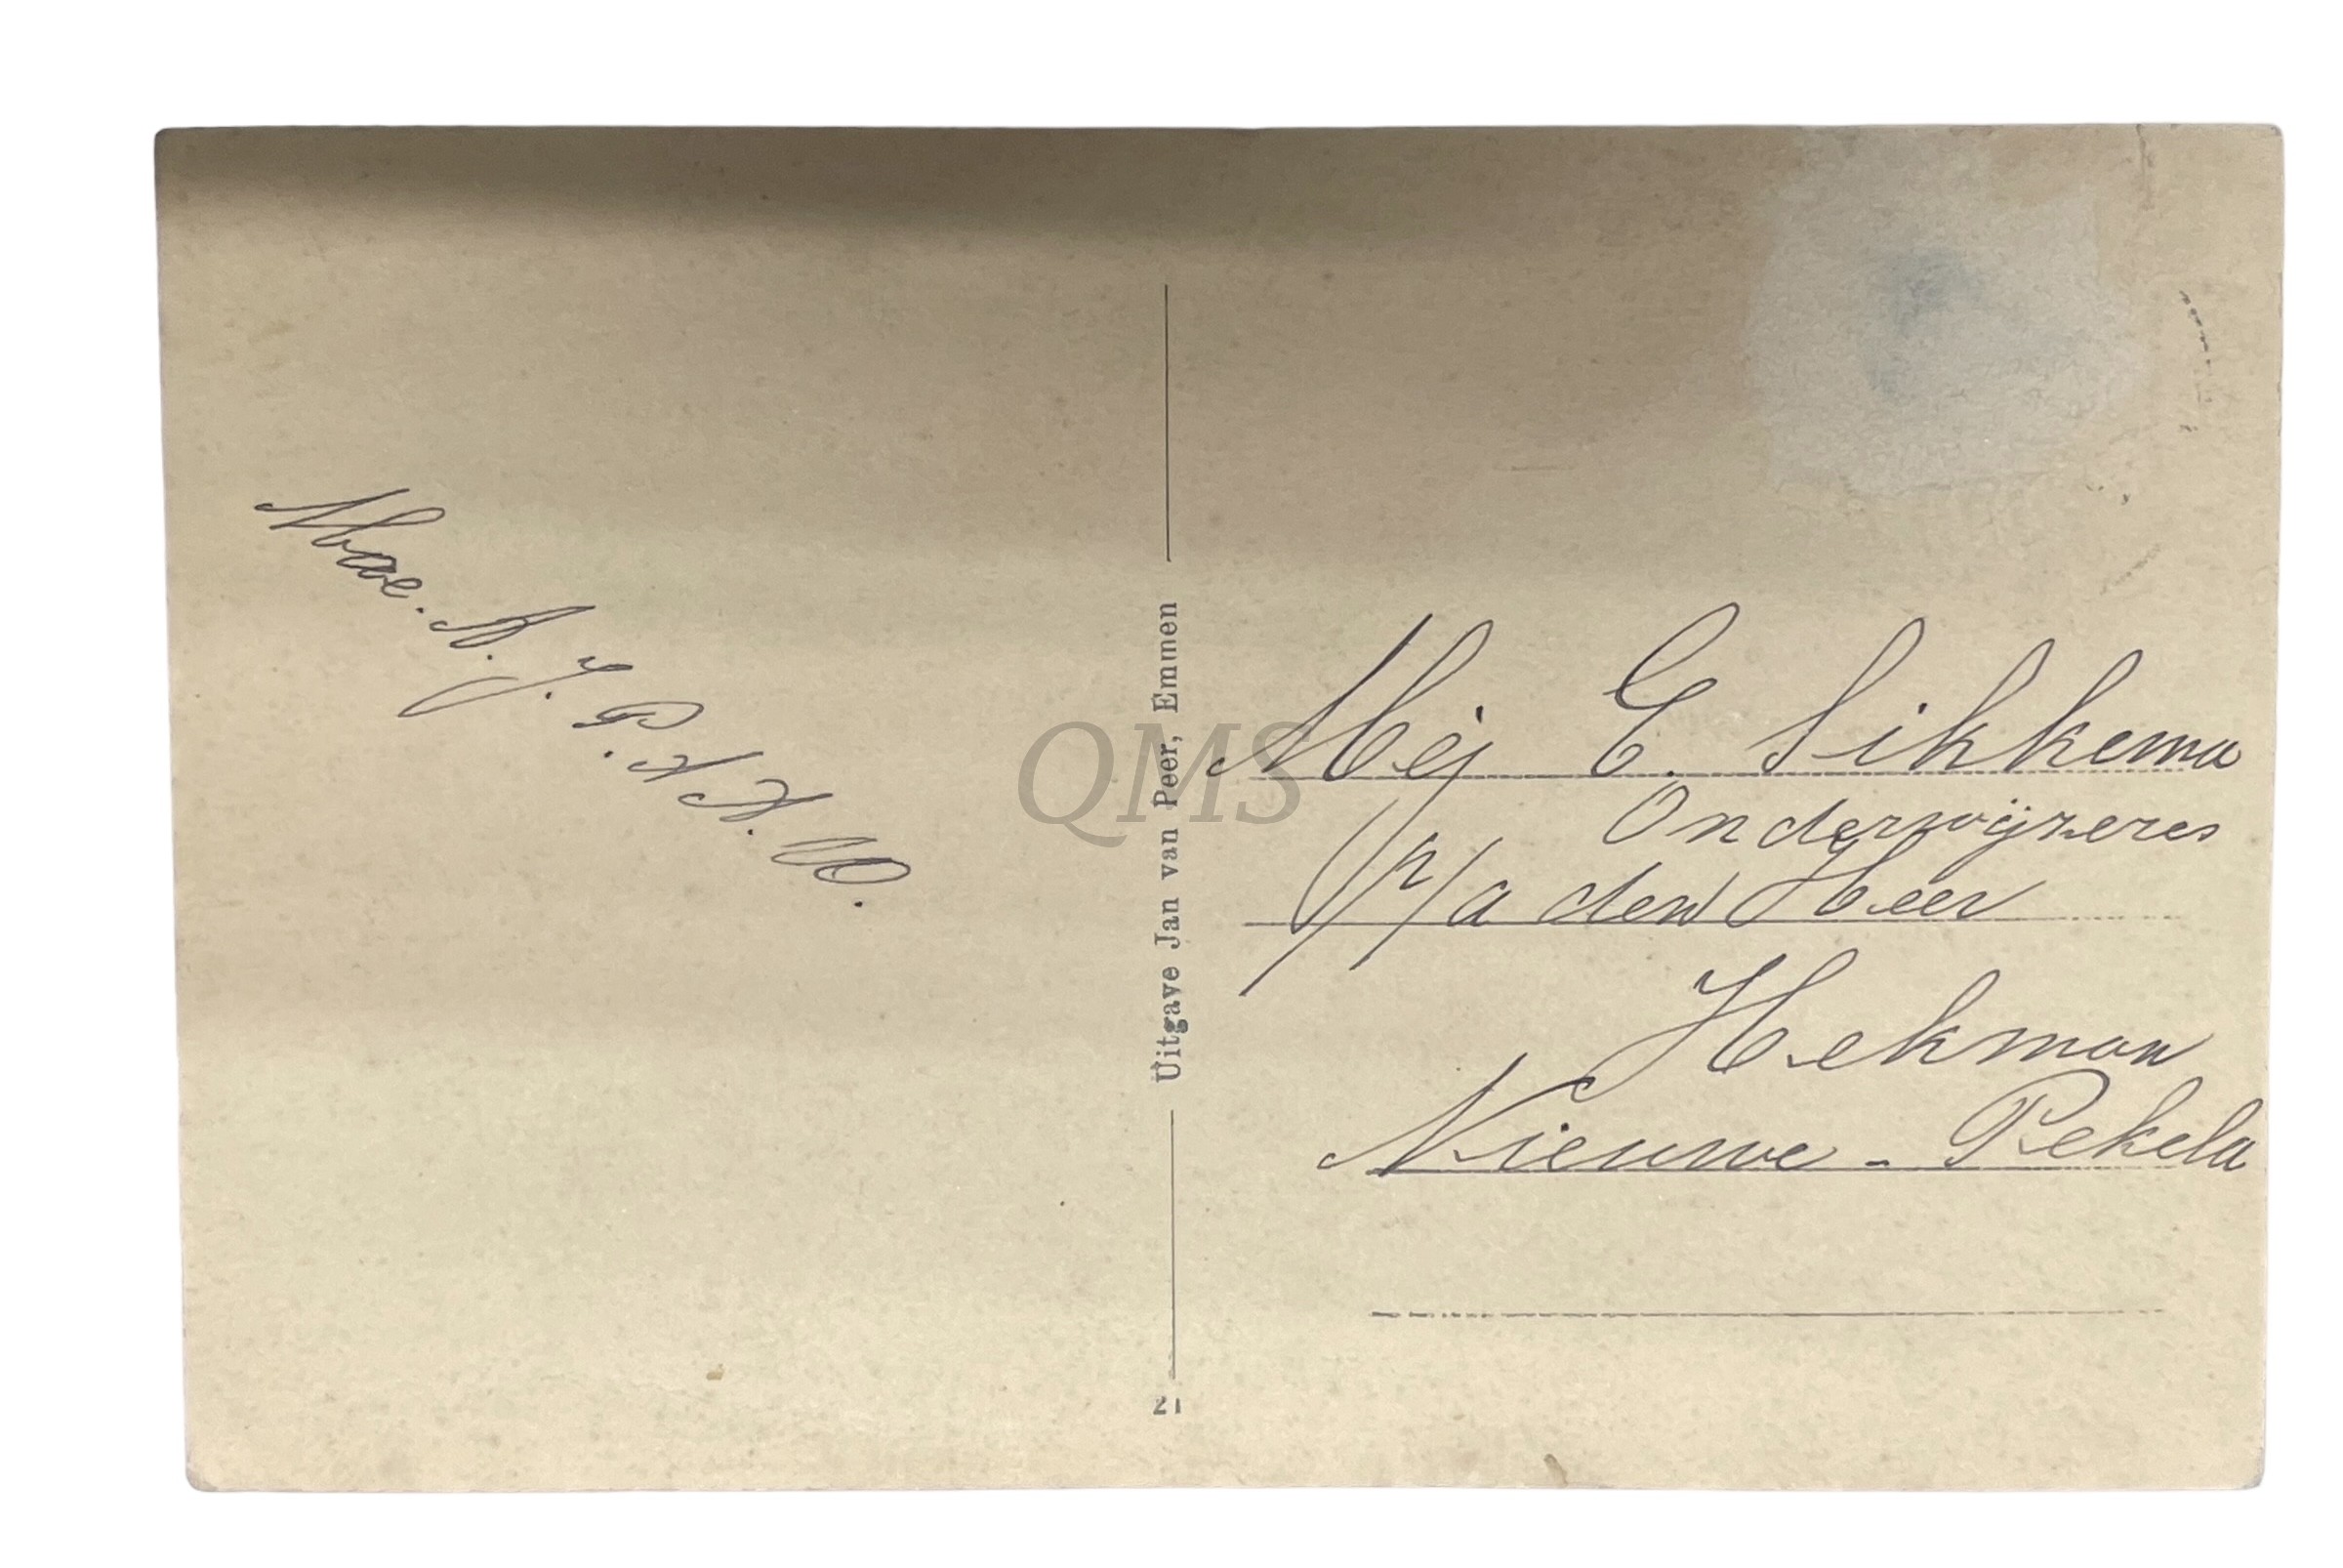 Uitgave Jan van Peer, Emmen
21
Mej E. Sikkema
Onderwijzeres
p/a den Heer
Hekman
Nieuwe - Pekela
QMS